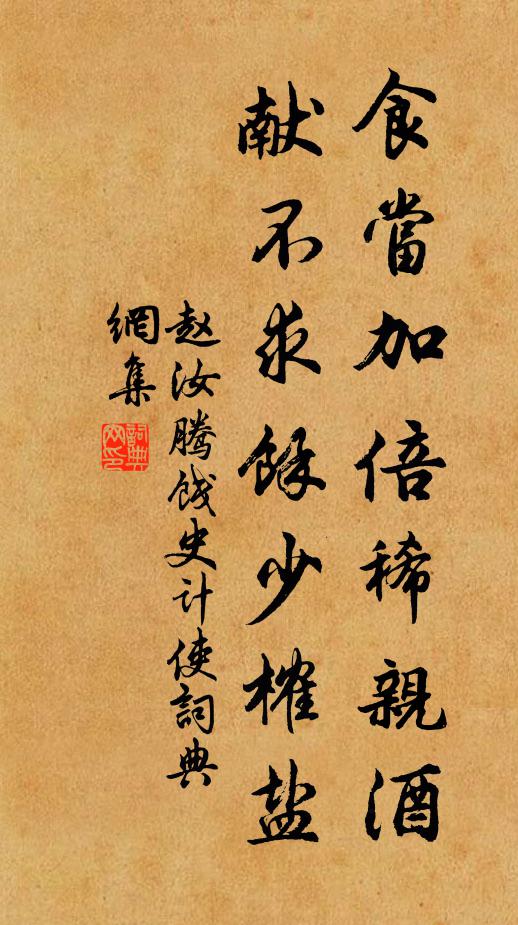 食當加倍稀親酒
献不求餘少榷盐
赵汝腾饯史计使詞典
網集
詞典網印